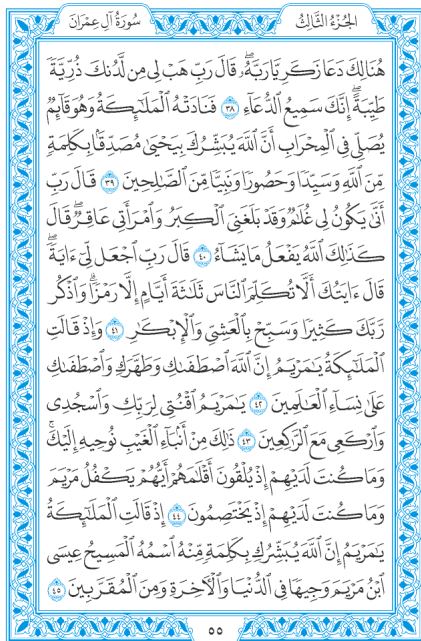 الجُزْءُ الثَّالِثُ سُورَةُ آلِ عِمْرَانَ
هُنَالِكَ دَعَا زَكَرِيَّا رَبَّهُۥۖ قَالَ رَبِّ هَبْ لِي مِن لَّدُنكَ ذُرِّيَّةٗ
طَيِّبَةًۖ إِنَّكَ سَمِيعُ ٱلدُّعَآءِ ٣٨ فَنَادَتْهُ ٱلْمَلَٰٓئِكَةُ وَهُوَ قَآئِمٞ
يُصَلِّي فِي ٱلْمِحْرَابِ أَنَّ ٱللَّهَ يُبَشِّرُكَ بِيَحْيَىٰ مُصَدِّقَۢا بِكَلِمَةٖ
مِّنَ ٱللَّهِ وَسَيِّدٗا وَحَصُورٗا وَنَبِيّٗا مِّنَ ٱلصَّٰلِحِينَ ٣٩ قَالَ رَبِّ
أَنَّىٰ يَكُونُ لِي غُلَٰمٞ وَقَدْ بَلَغَنِيَ ٱلْكِبَرُ وَٱمْرَأَتِي عَاقِرٞۖ قَالَ
كَذَٰلِكَ ٱللَّهُ يَفْعَلُ مَا يَشَآءُ ٤٠ قَالَ رَبِّ ٱجْعَل لِّيٓ ءَايَةٗۖ
قَالَ ءَايَتُكَ أَلَّا تُكَلِّمَ ٱلنَّاسَ ثَلَٰثَةَ أَيَّامٍ إِلَّا رَمْزٗاۗ وَٱذْكُر
رَّبَّكَ كَثِيرٗا وَسَبِّحْ بِٱلْعَشِيِّ وَٱلْإِبْكَٰرِ ٤١ وَإِذْ قَالَتِ
ٱلْمَلَٰٓئِكَةُ يَٰمَرْيَمُ إِنَّ ٱللَّهَ ٱصْطَفَىٰكِ وَطَهَّرَكِ وَٱصْطَفَىٰكِ
عَلَىٰ نِسَآءِ ٱلْعَٰلَمِينَ ٤٢ يَٰمَرْيَمُ ٱقْنُتِي لِرَبِّكِ وَٱسْجُدِي
وَٱرْكَعِي مَعَ ٱلرَّٰكِعِينَ ٤٣ ذَٰلِكَ مِنْ أَنۢبَآءِ ٱلْغَيْبِ نُوحِيهِ إِلَيْكَۚ
وَمَا كُنتَ لَدَيْهِمْ إِذْ يُلْقُونَ أَقْلَٰمَهُمْ أَيُّهُمْ يَكْفُلُ مَرْيَمَ
وَمَا كُنتَ لَدَيْهِمْ إِذْ يَخْتَصِمُونَ ٤٤ إِذْ قَالَتِ ٱلْمَلَٰٓئِكَةُ
يَٰمَرْيَمُ إِنَّ ٱللَّهَ يُبَشِّرُكِ بِكَلِمَةٖ مِّنْهُ ٱسْمُهُ ٱلْمَسِيحُ عِيسَى
ٱبْنُ مَرْيَمَ وَجِيهٗا فِي ٱلدُّنْيَا وَٱلْأٓخِرَةِ وَمِنَ ٱلْمُقَرَّبِينَ ٤٥
٥٥